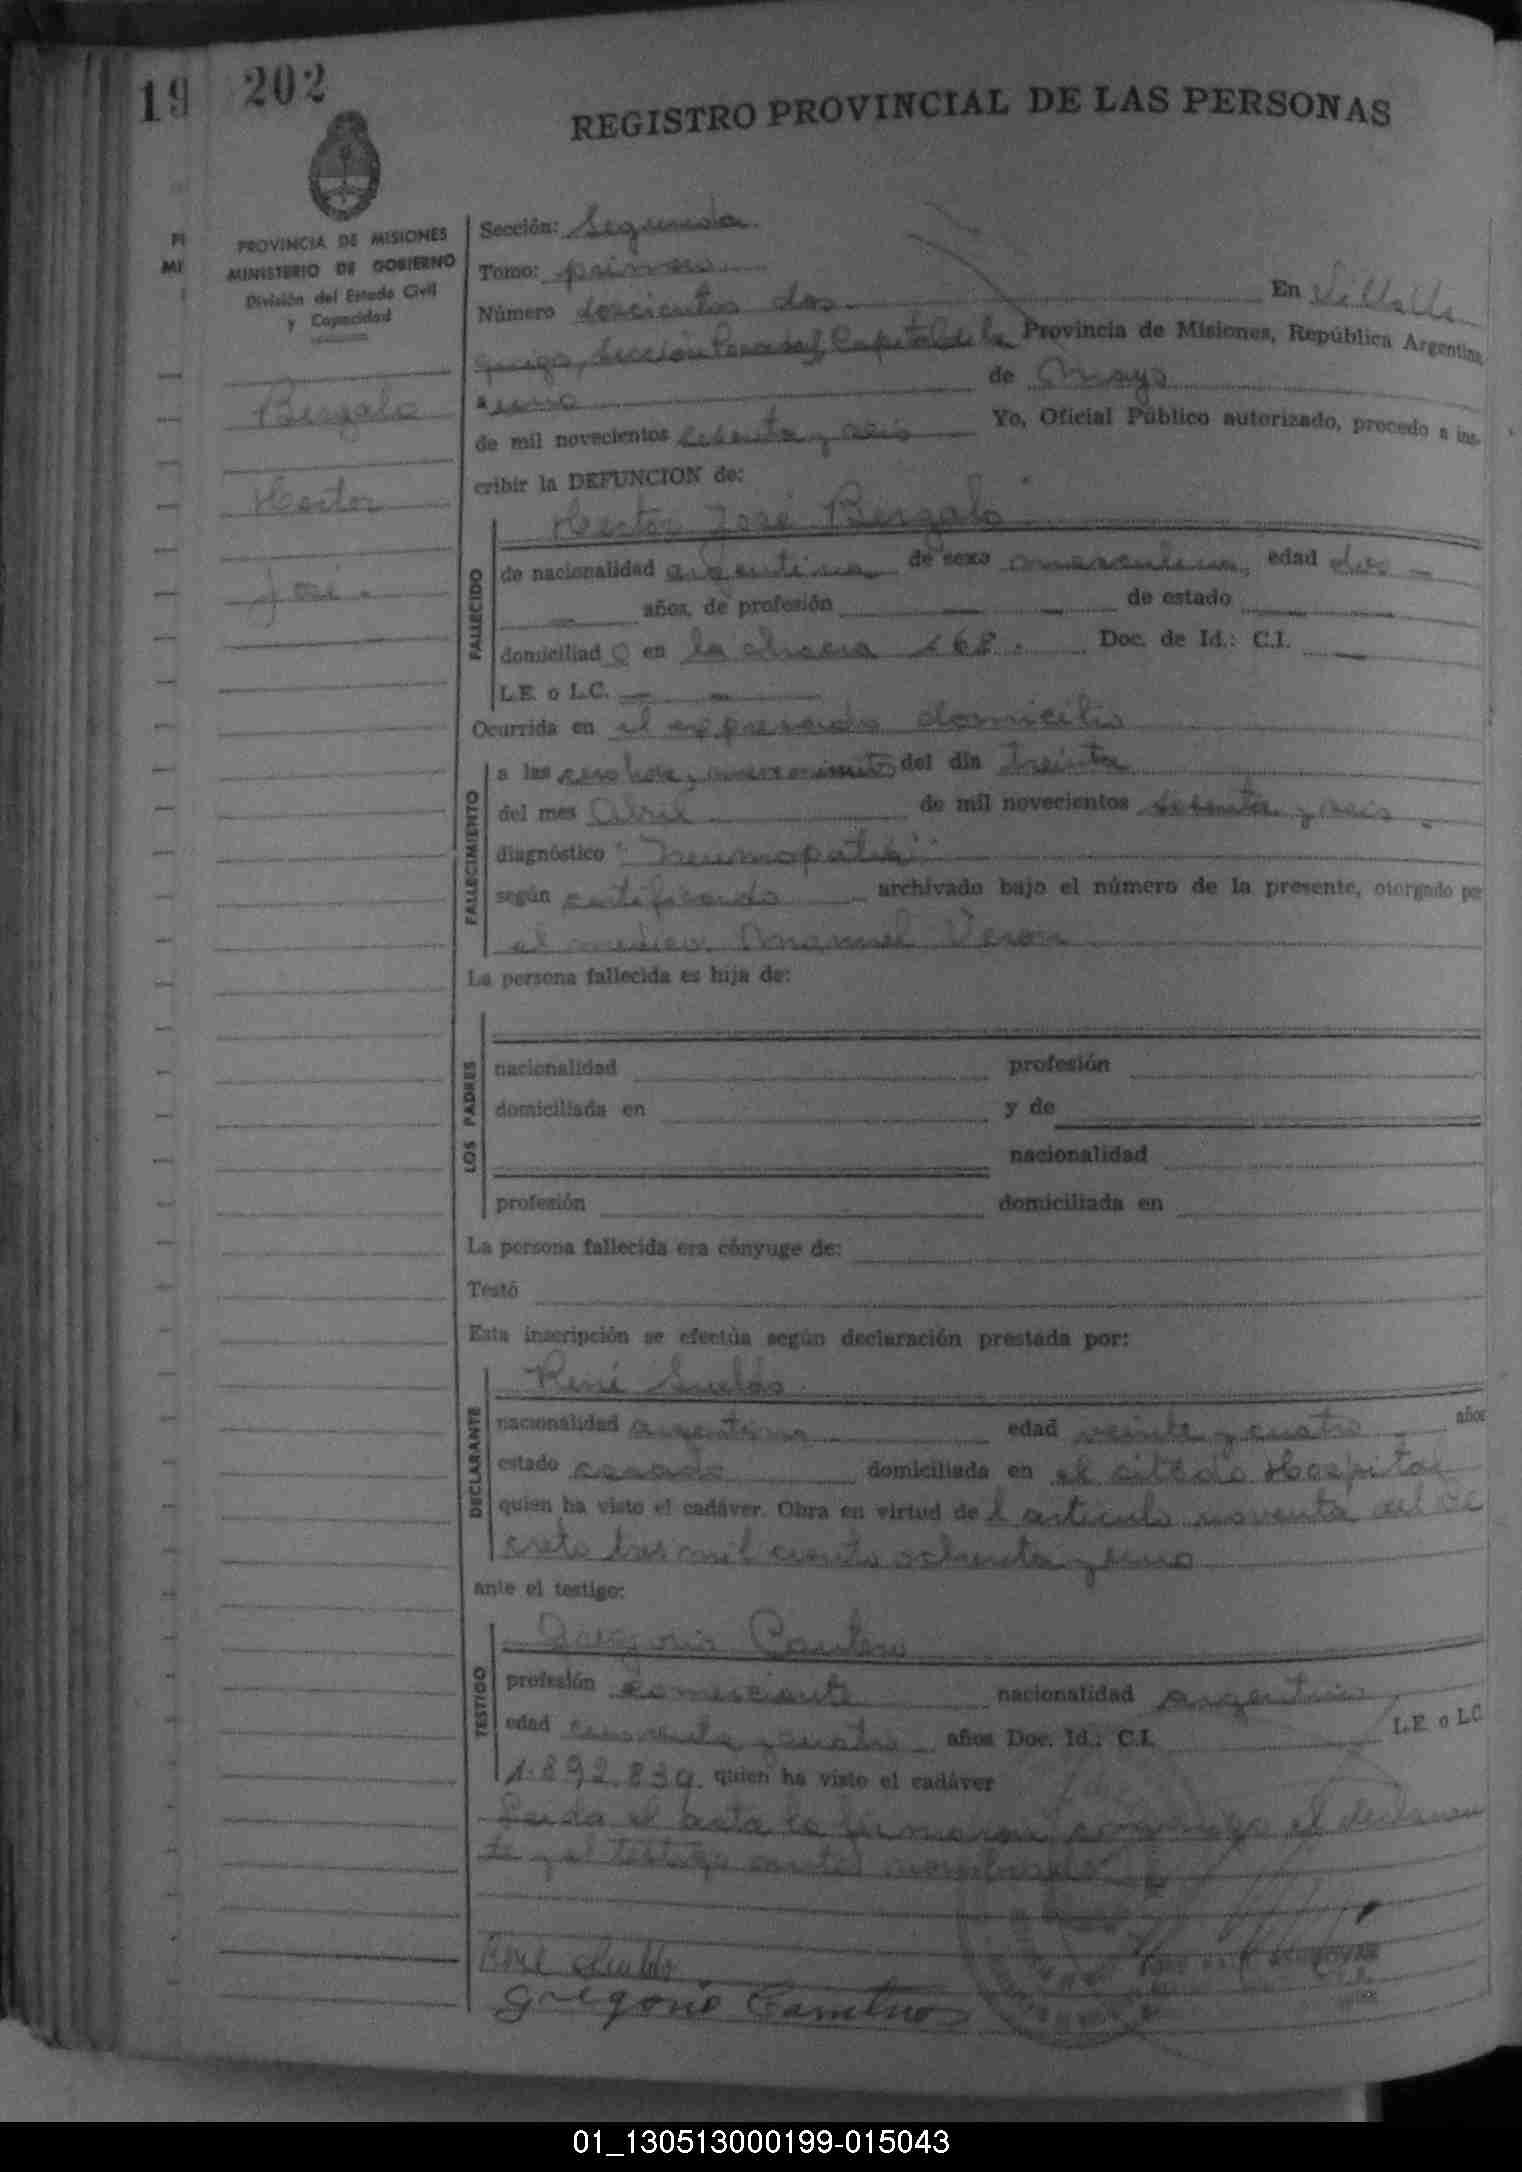 19 202
REGISTRO PROVINCIAL DE LAS PERSONAS
PROVINCIA DE MISIONES
MINISTERIO DE GOBIERNO
División del Estado Civil
y Capacidad
Bergalo
Hector
José.
Sección: Segunda
Tomo: primero
Número doscientos dos. En Villalle
Sección Posadas, Capital de la Provincia de Misiones, República Argentina
a uno de Mayo
de mil novecientos setenta y seis Yo, Oficial Público autorizado, procedo a ins-
cribir la DEFUNCION de:
FALLECIDO
Hector José Bergalo
de nacionalidad argentina de sexo masculino, edad dos
años, de profesión de estado
domiciliado en la chacra 168. Doc. de Id.: C.I.
L.E. o L.C.
Ocurrida en el expresado domicilio
FALLECIMIENTO
a las del día treinta
del mes Abril de mil novecientos setenta y seis.
diagnóstico "Neumopatia"
según certificado archivado bajo el número de la presente, otorgado por
el medico Manuel Veron
La persona fallecida es hija de:
LOS PADRES
nacionalidad profesión
domiciliada en y de
nacionalidad
profesión domiciliada en
La persona fallecida era cónyuge de:
Testó
Esta inscripción se efectúa según declaración prestada por:
DECLARANTE
René Sueldo
nacionalidad argentino edad veinte y cuatro años
estado casado domiciliada en el citado Hospital
quien ha visto el cadáver. Obra en virtud del articulo noventa del de
creto tres mil ciento ochenta y uno
ante el testigo:
TESTIGO
Gregorio Cantero
profesión comerciante nacionalidad argentino
edad cincuenta y cuatro años Doc. Id.: C.I. L.E. o L.C.
1.892.839. quien ha visto el cadáver
Leida el acta la firmaron conmigo el declaran
te y el testigo antes nombrado
René Sueldo
Gregorio Cantero
01_130513000199-015043